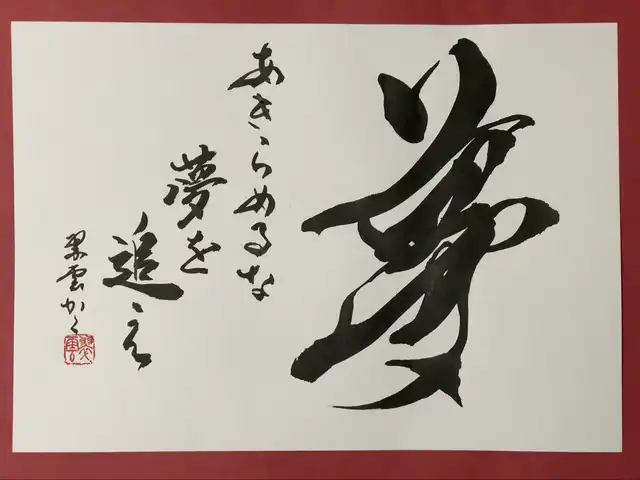 夢
あきらめるな
夢を
追え
翠雲かく